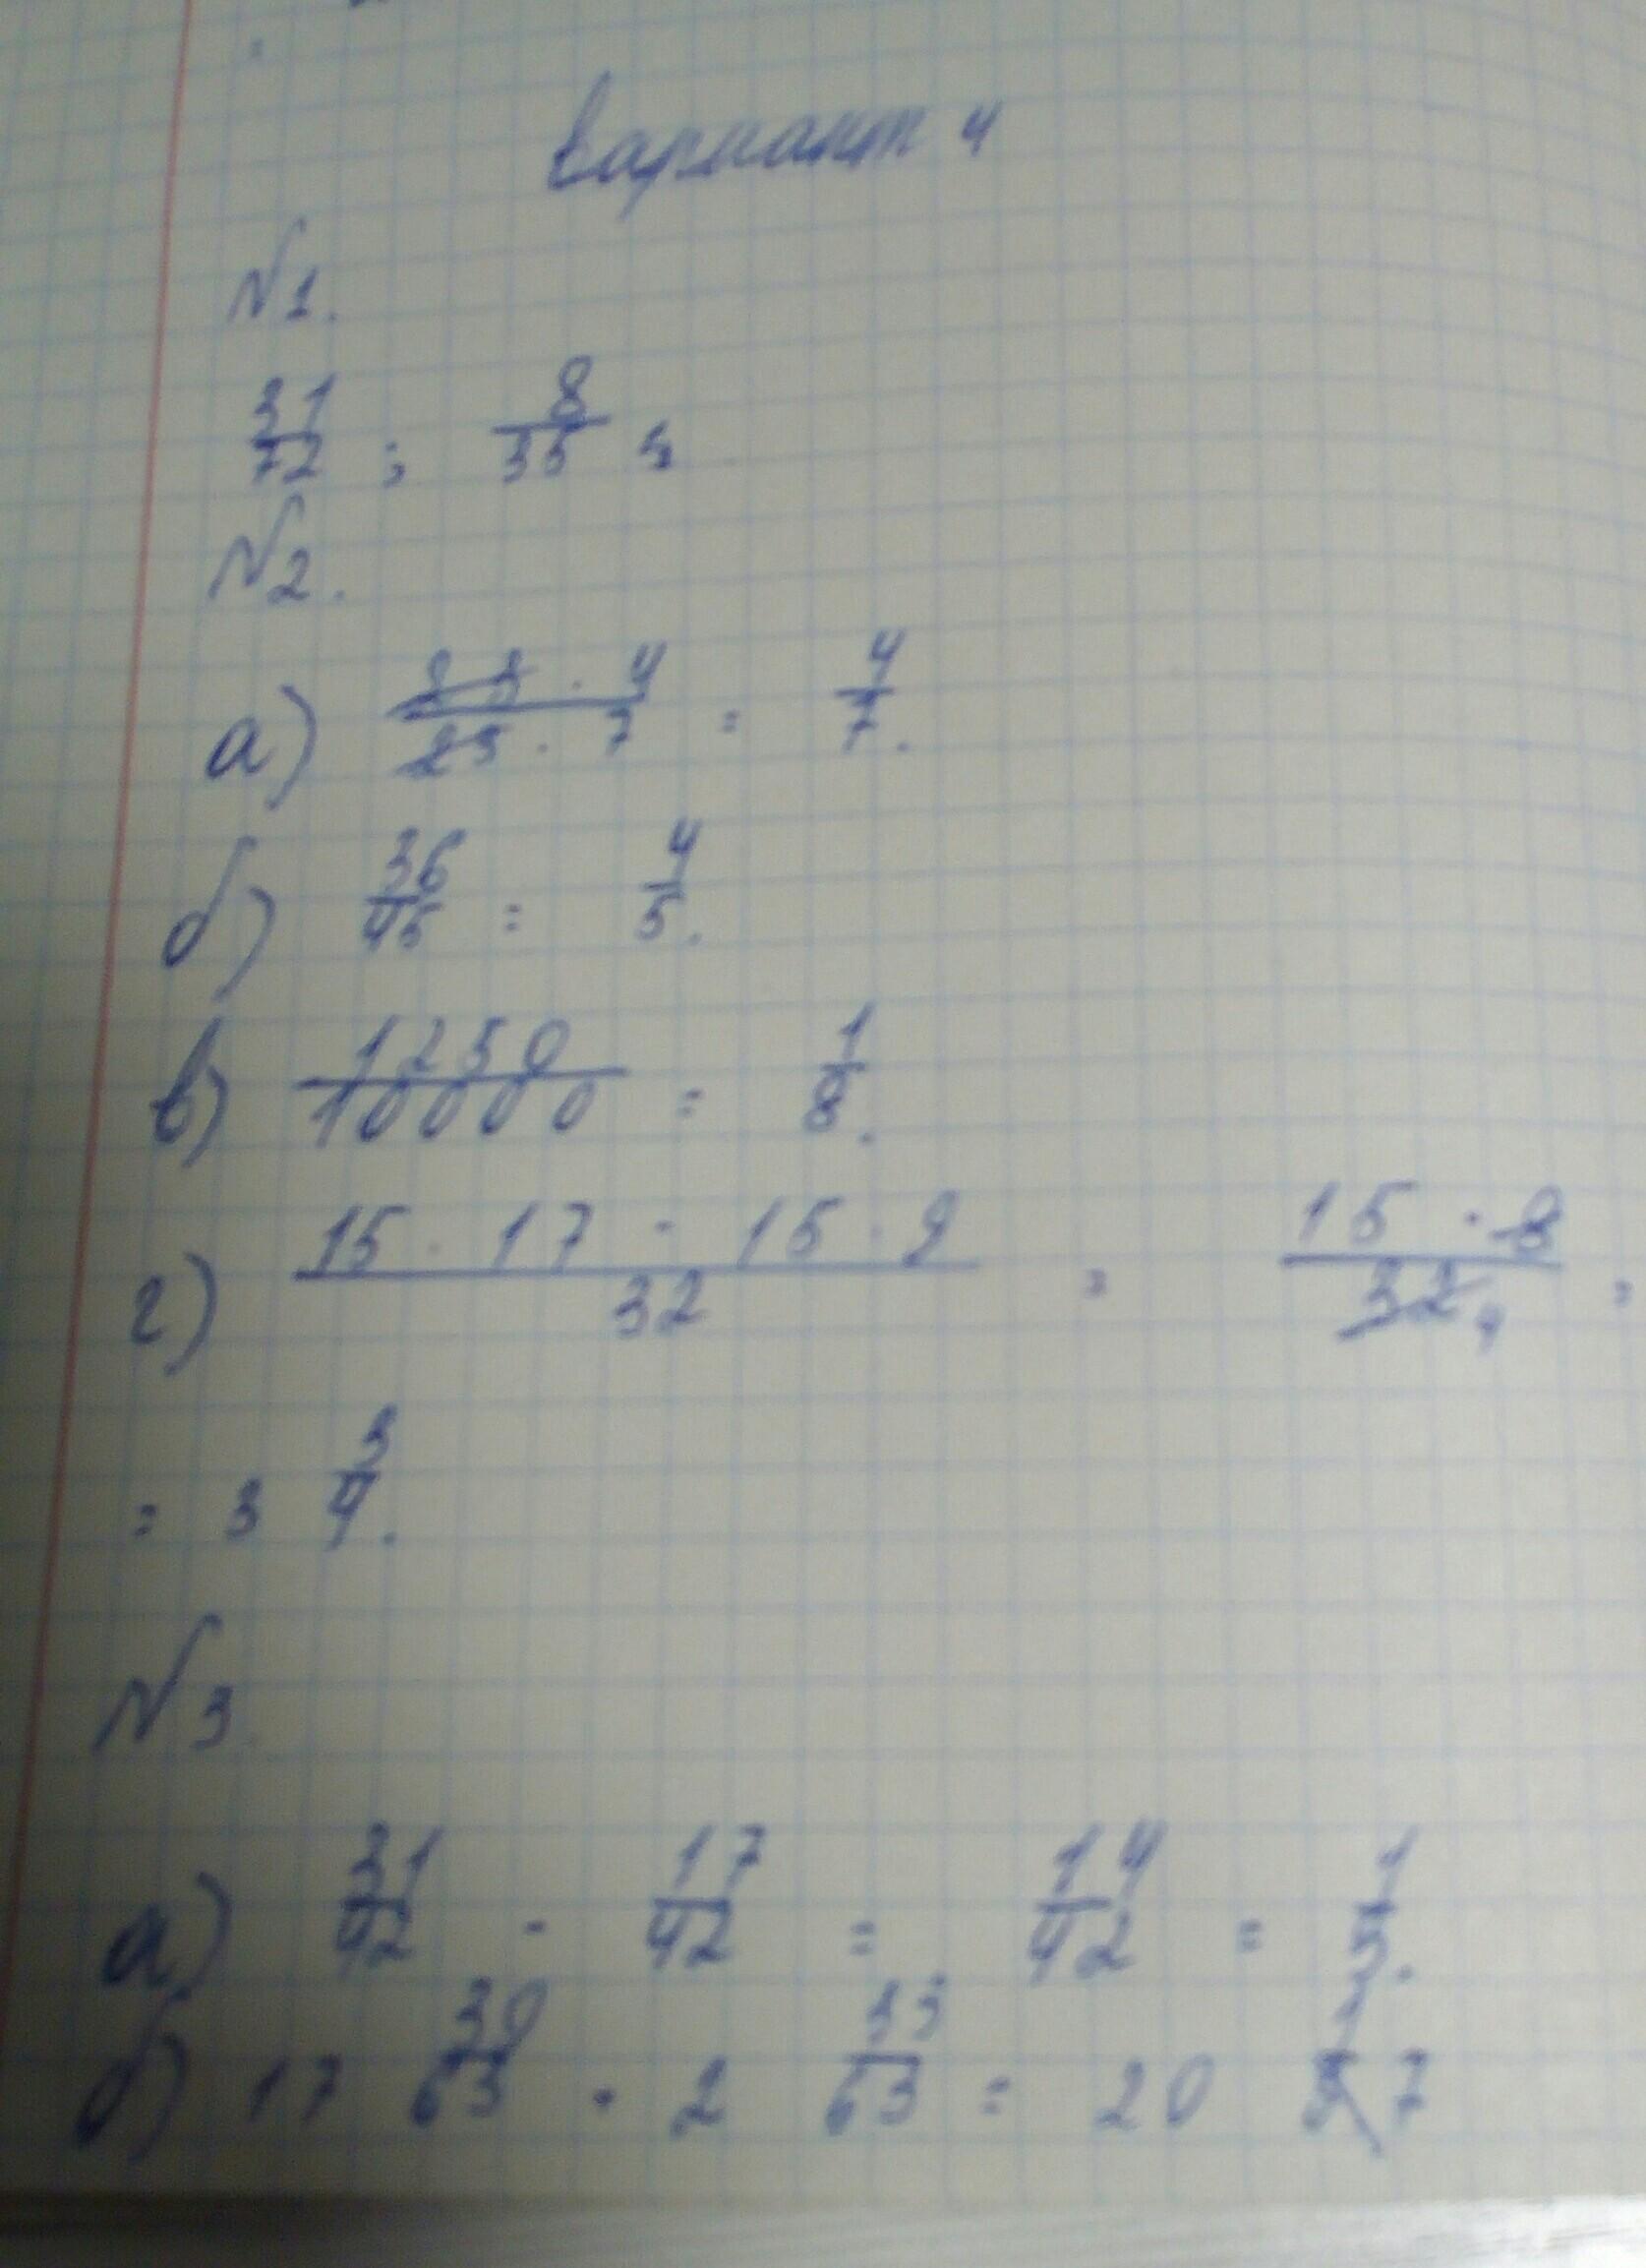 Вариант 4
N1.
31/72 ; 8/35
N2.
а) · 4 / 25 · 7 = 4/7.
б) 36/45 = 4/5.
в) 1250/10000 = 1/8.
г) 15 · 17 - 15 · 9 / 32 = 15 · 8 / 32 4 =
= 3 3/4.
N3
а) 31/42 - 17/42 = 14/42 = 1/3.
б) 17 39/63 + 2 33/63 = 20 1/7